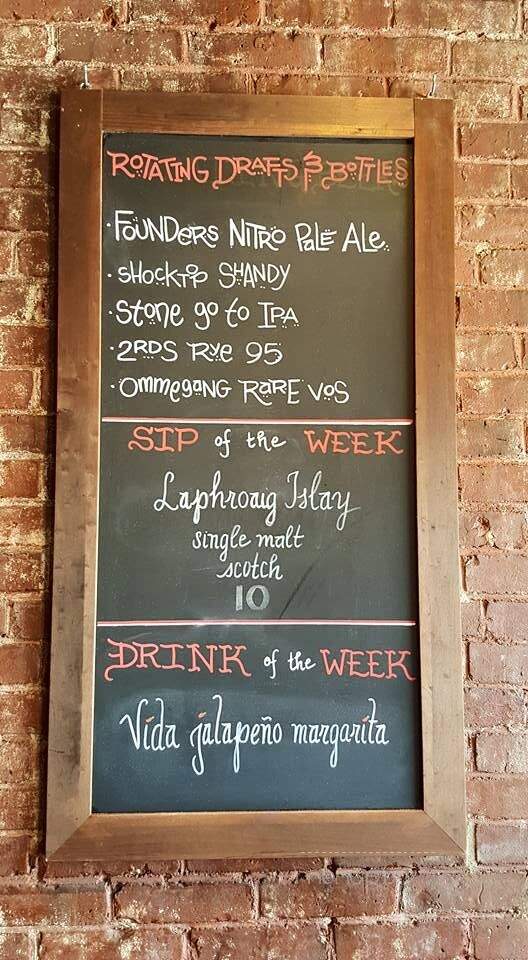 ROTATING DRAFTS & BOTTLES
· FOUNDERS NITRO PALE ALE
· SHOCKTOP SHANDY
· STONE go to IPA
· 2RDS RYE 95
· OMMEGANG RARE VOS
SIP of the WEEK
Laphroaig Islay
single malt
scotch
10
DRINK of the WEEK
Vida jalapeño margarita